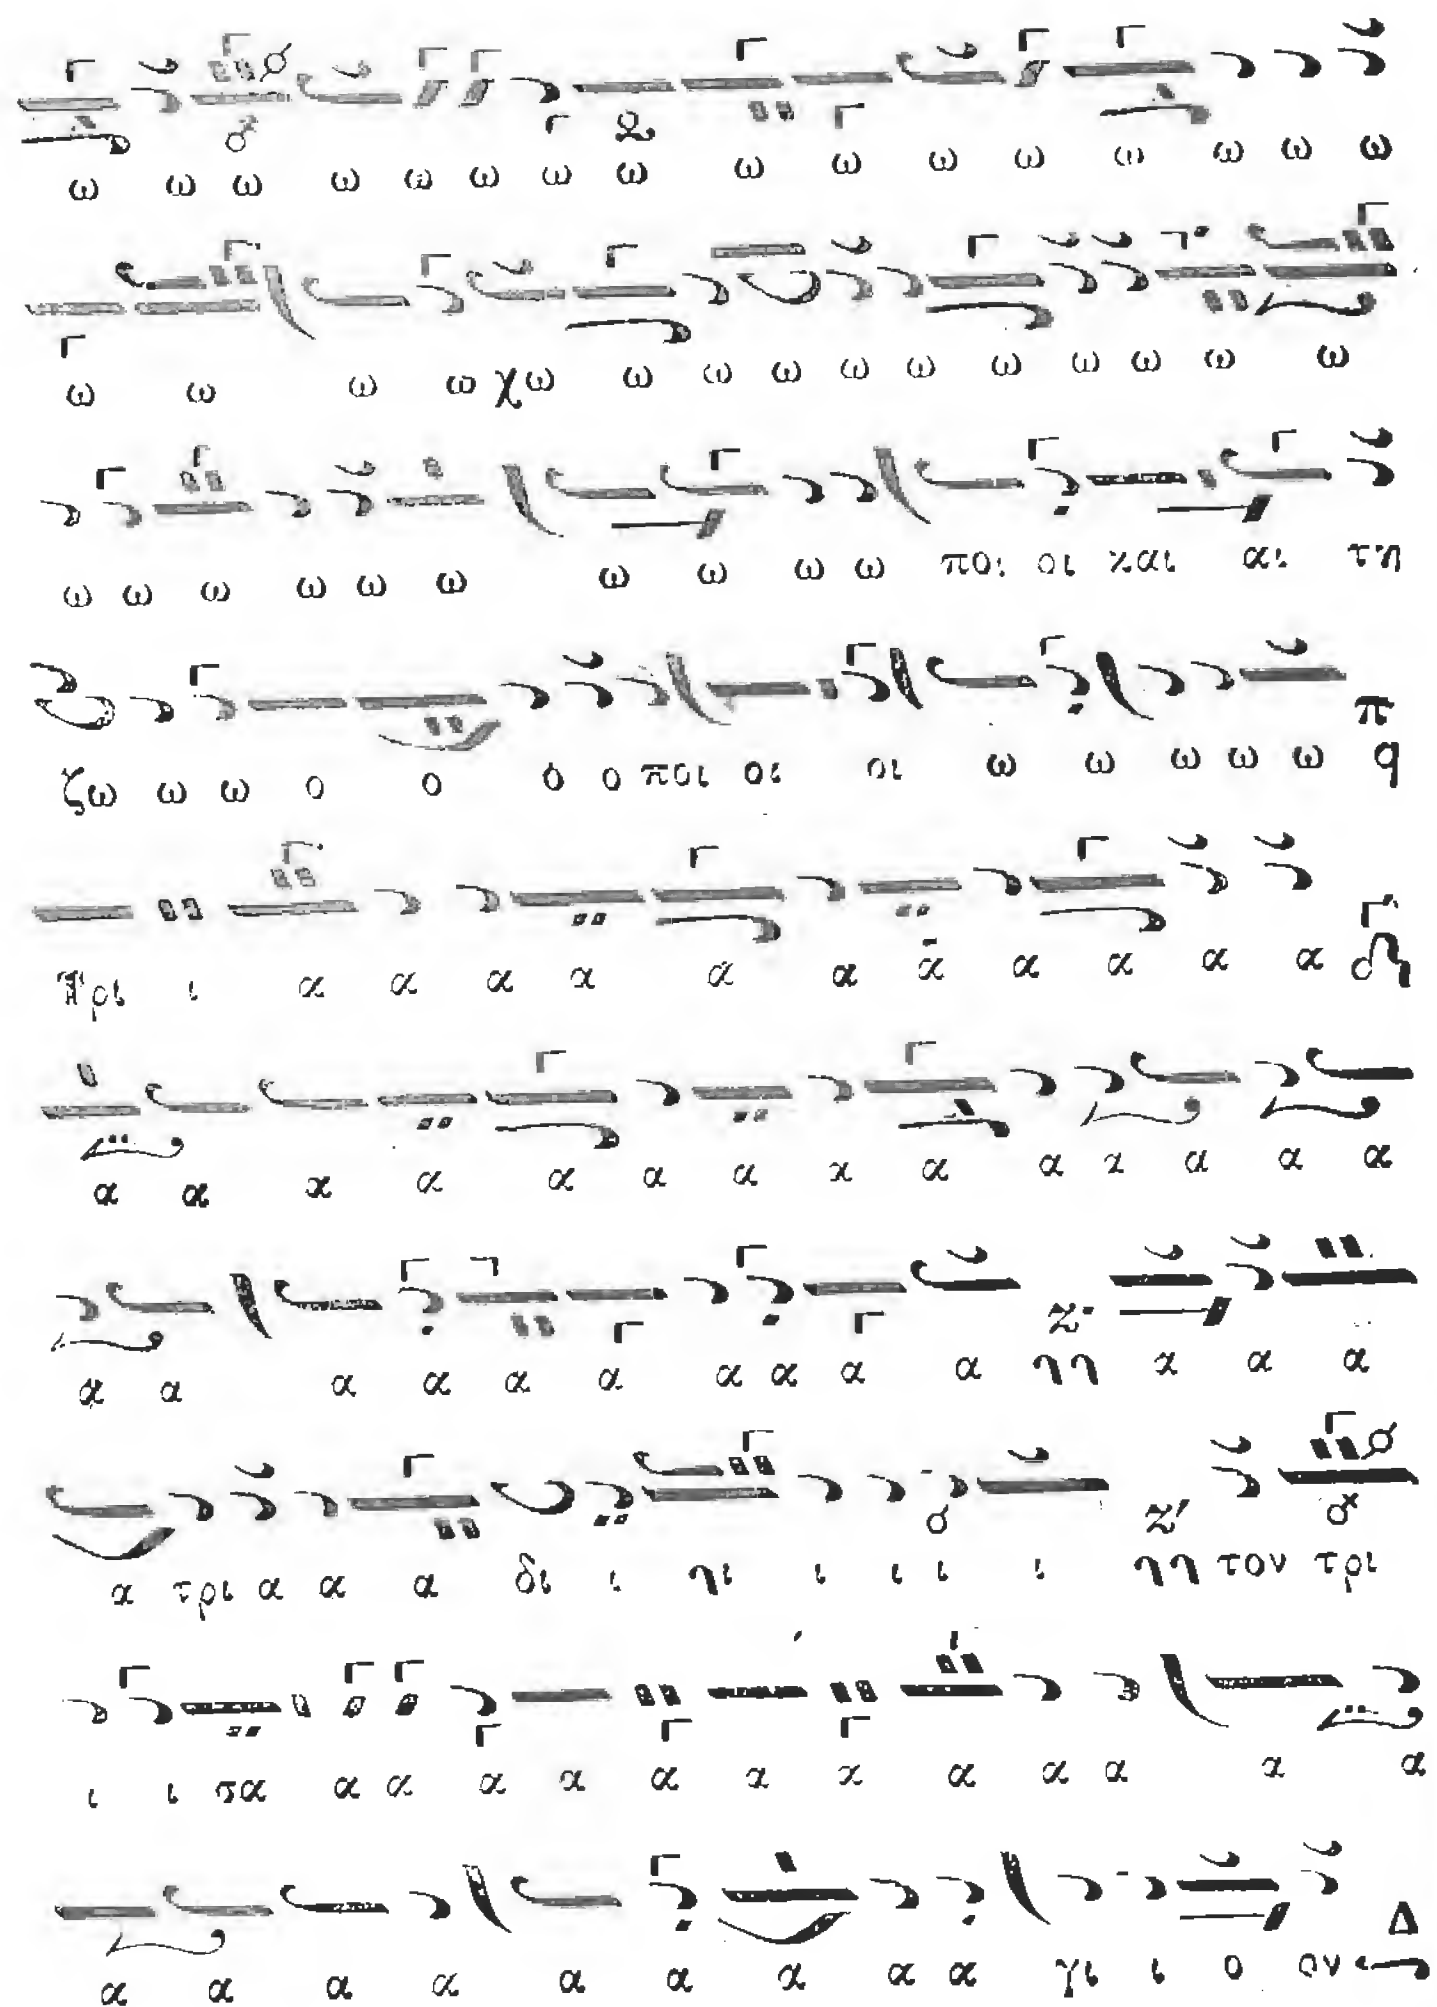 ω ω ω ω ω ω ω ω ω ω ω ω ω ω ω ω
ω ω ω ω χω ω ω ω ω ω ω ω ω ω ω
ω ω ω ω ω ω ω ω ω ω ποι οι και αι τη
ζω ω ω ο ο ο ο ποι οι οι ω ω ω ω ω π q
Τρι ι α α α α α α α α α α α
α α α α α α α α α α α α α α
α α α α α α α α α α α α α
α τρι α α α δι ι ηι ι ι ι ι τον τρι
ι ι σα α α α α α α α α α α α α
α α α α α α α α α γι ι ο ον Δ